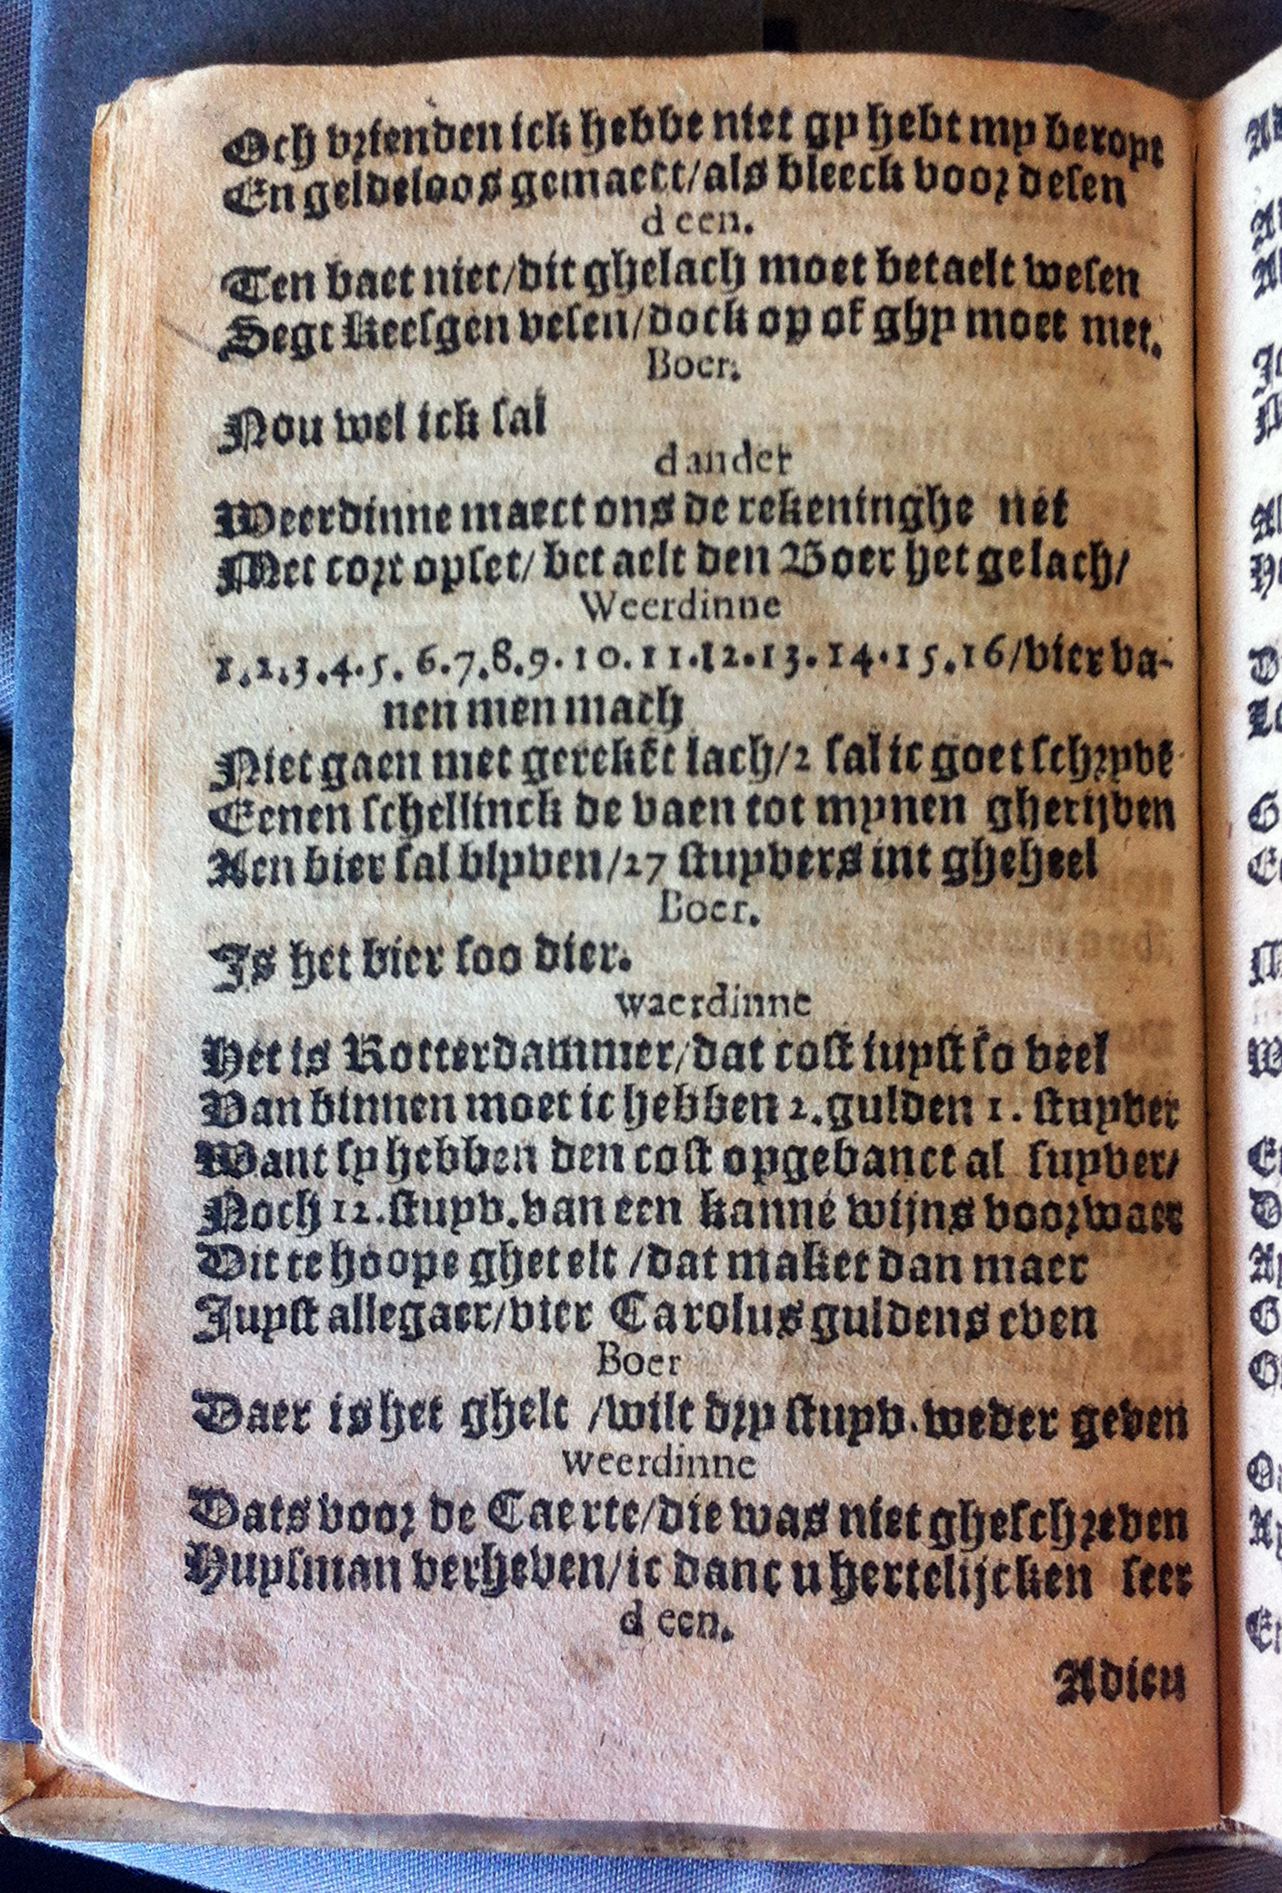 Och vrienden ick hebbe niet gy hebt my beropt
En geldeloos gemaect/als bleeck voor desen
d een.
Ten baet niet/dit ghelach moet betaelt wesen
Segt Keesgen vesen/dock op of ghy moet met.
Boer.
Nou wel ick sal
dander
Weerdinne maect ons de rekeninghe net
Met cort opset/ bet aelt den Boer het gelach/
Weerdinne
1.2.3.4.5.6.7.8.9.10.11.12.13.14.15.16/bier va-
nen men mach
Niet gaen met gerekẽt lach/2 sal ic goet schryvẽ
Eenen schellinck de vaen tot mynen gherijven
Aen bier sal blyven/27 stuyvers int gheheel
Boer.
Is het bier soo dier.
waerdinne
Het is Rotterdammer/dat cost iuyst so veel
Van binnen moet ic hebben 2.gulden 1. stuyver
Want sy hebben den cost opgebanct al suyver/
Noch 12.stuyv.van een kanne wijns voorwaer
Dit te hoope ghetelt /dat maket dan maer
Juyst allegaer/vier Carolus guldens even
Boer
Daer is het ghelt /wilt dry stuyv.weder geven
weerdinne
Dats voor de Caerte/die was niet gheschreven
Huysman verheven/ic danc u hertelijcken seer
d een.
Adieu